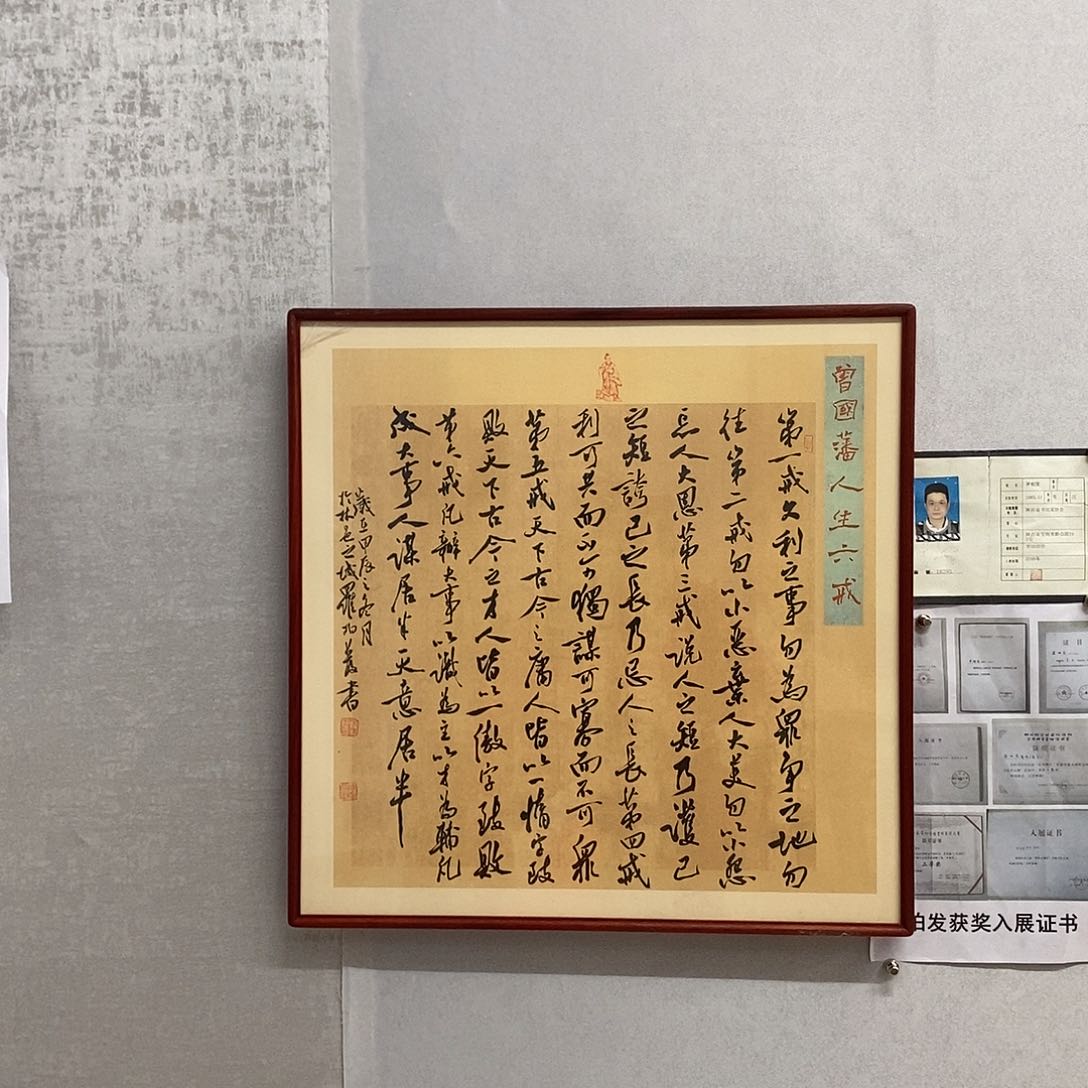 曾國藩人生六戒
第一戒久利之事勿為眾爭之地勿
往第二戒勿以小惡棄人大美勿以小怨
忘人大恩第三戒說人之短乃護己
之短誇己之長乃忌人之長第四戒
利可共而不可獨謀可寡而不可眾
第五戒天下古今之庸人皆以一惰字致
敗天下古今之才人皆以一傲字致敗
第六戒凡辦大事以識為主以才為輔凡
成大事人謀居半天意居半
歲在甲辰之冬月
於林邑之城羅書
入展证书
发获奖入展证书